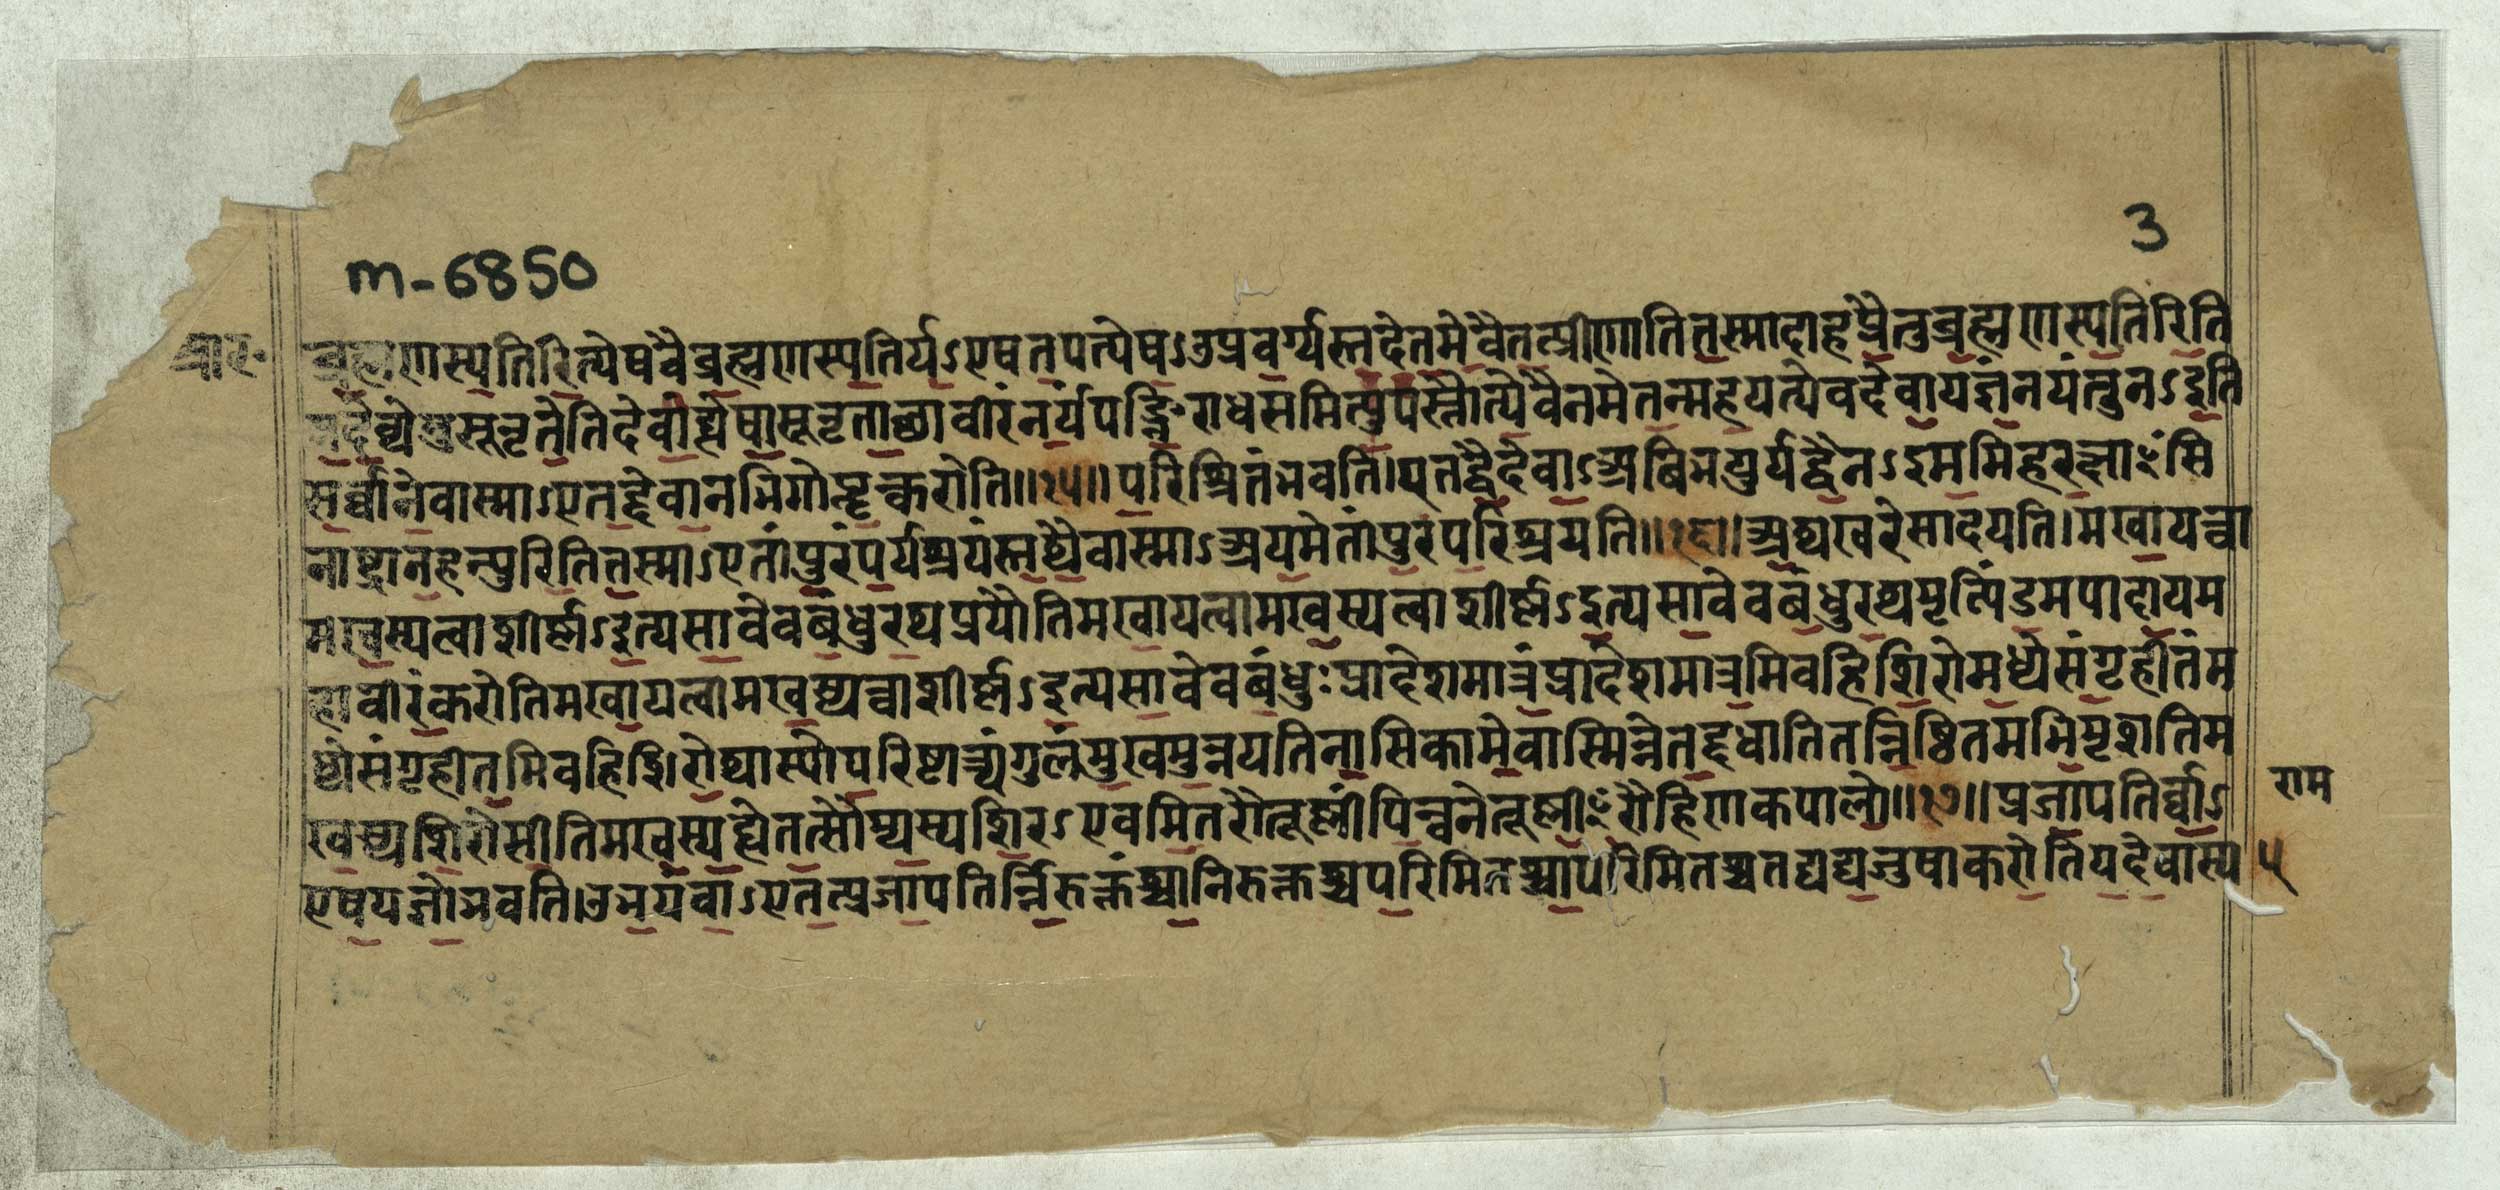 3
m-6850
ब्रह्मणस्पतिरित्येषवैब्रह्मणस्पतिर्यऽएषतपत्येषऽउप्रवर्ग्यस्तदेतमेवैतत्प्रीणातितस्मादाहप्रैतुब्रह्मणस्पतिरिति
प्रदेव्येतुसूनृतेतिदेवीह्येषासूनृताछावीरंनर्यंपङ्क्तिराधसमित्युपस्तौत्येवैनमेतन्महयत्येवदेवायज्ञंनयंतुनऽइति
सर्व्वानेवास्माऽएतद्देवानभिगोप्तॄन्करोति॥१५॥परिश्रितंभवति।एतद्वैदेवाऽअबिभयुर्यद्वैनऽइममिहरक्षाꣳसि
नाष्ट्रानहन्युरितितस्माऽएतांपुरंपर्यश्रयंस्तथैवास्माऽअयमेतांपुरंपरिश्रयति॥१६॥अथखरेसादयति।मखायत्वा
मखस्यत्वाशीर्ष्णऽइत्यसावेवबंधुरथप्रयौतिमखायत्वामखस्यत्वाशीर्ष्णऽइत्यसावेवबंधुरथमृत्पिंडमपादायम
हावीरंकरोतिमखायत्वामखस्यत्वाशीर्ष्णऽइत्यसावेवबंधुःप्रादेशमात्रंप्रादेशमात्रमिवहिशिरोमध्येसंगृहीतंम
ध्येसंगृहीतमिवहिशिरोथास्योपरिष्टात्र्यंगुलंमुखमुन्नयतिनासिकामेवास्मिन्नेतद्दधातितन्निष्ठितमभिमृशतिम
खस्यशिरोसीतिमखस्यह्येतत्सौम्यस्यशिरऽएवमितरौतूष्णींपिन्वनेतूष्णीꣳरौहिणकपाले॥१७॥प्रजापतिर्व्वाऽ
राम
एषयज्ञोभवति।उभयंवाऽएतत्प्रजापतिर्न्निरुक्तश्चानिरुक्तश्चपरिमितश्चापरिमितश्चतद्यद्यजुषाकरोतियदेवास्य
५